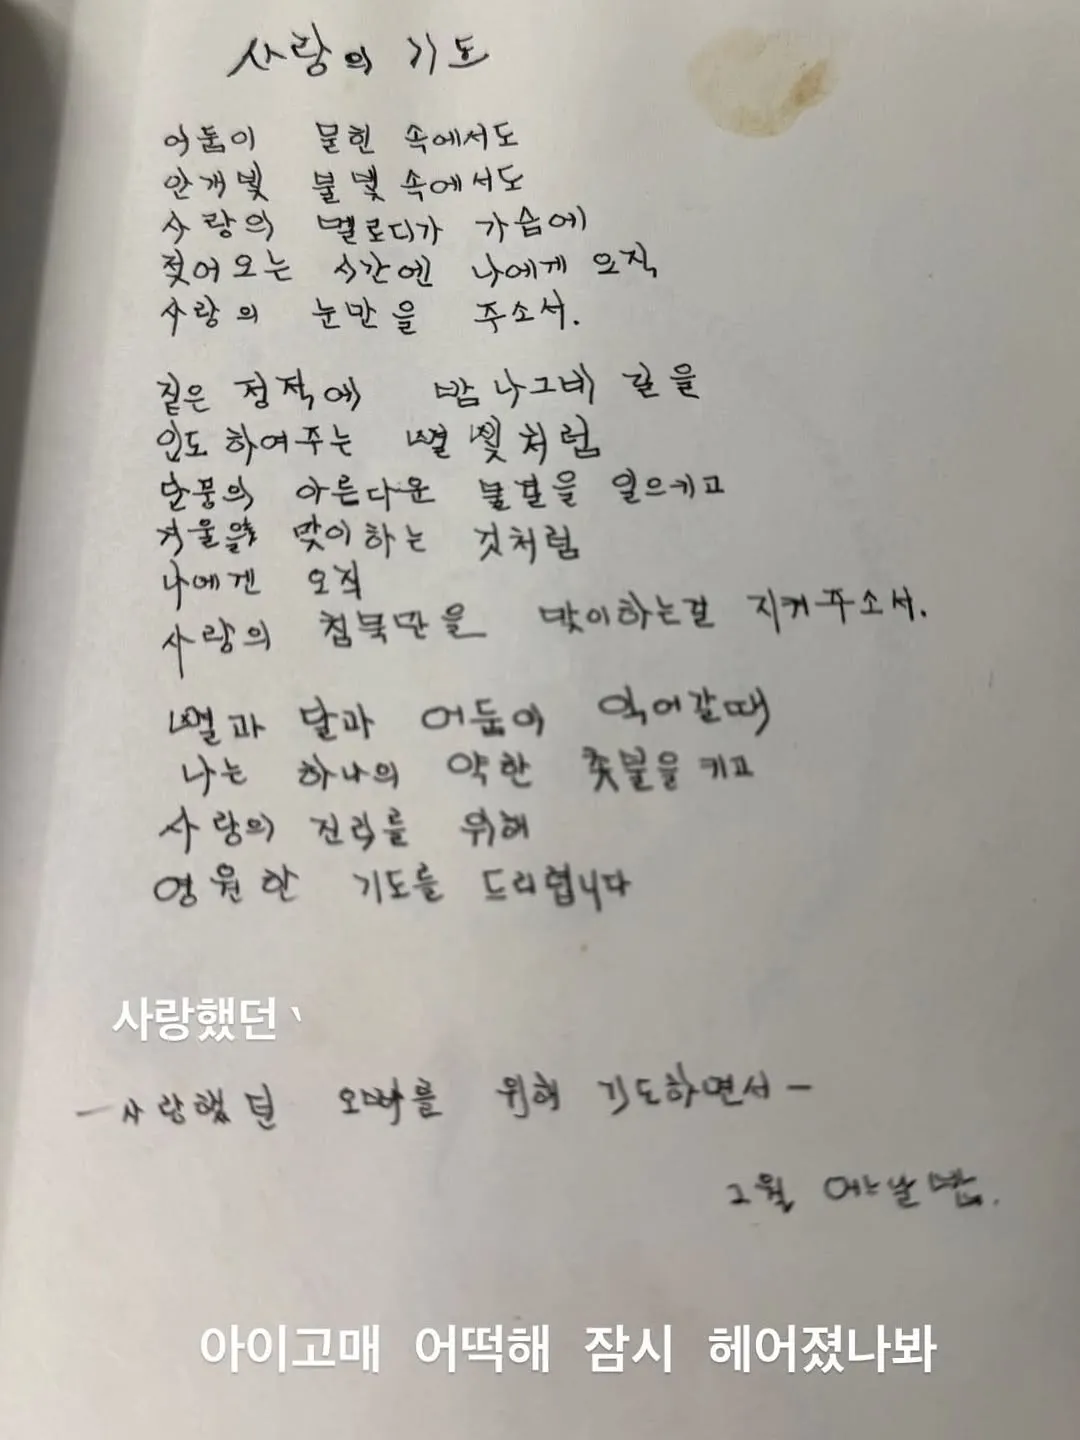 사랑의 기도
어둠이 묻힌 속에서도
안개빛 불빛 속에서도
사랑의 멜로디가 가슴에
젖어오는 시간엔 나에게 오직
사랑의 눈만을 주소서.
짙은 정적에 밤나그네 길을
인도하여주는 별빛처럼
단풍의 아름다운 물결을 일으키고
겨울을 맞이하는 것처럼
나에겐 오직
사랑의 침묵만을 맞이하는걸 지켜주소서.
별과 달과 어둠이 익어갈때
나는 하나의 약한 촛불을 키고
사랑의 진리를 위해
영원한 기도를 드리렵니다
사랑했던
-사랑했던 오빠를 위해 기도하면서-
2월 어느날 밤.
아이고매 어떡해 잠시 헤어졌나봐